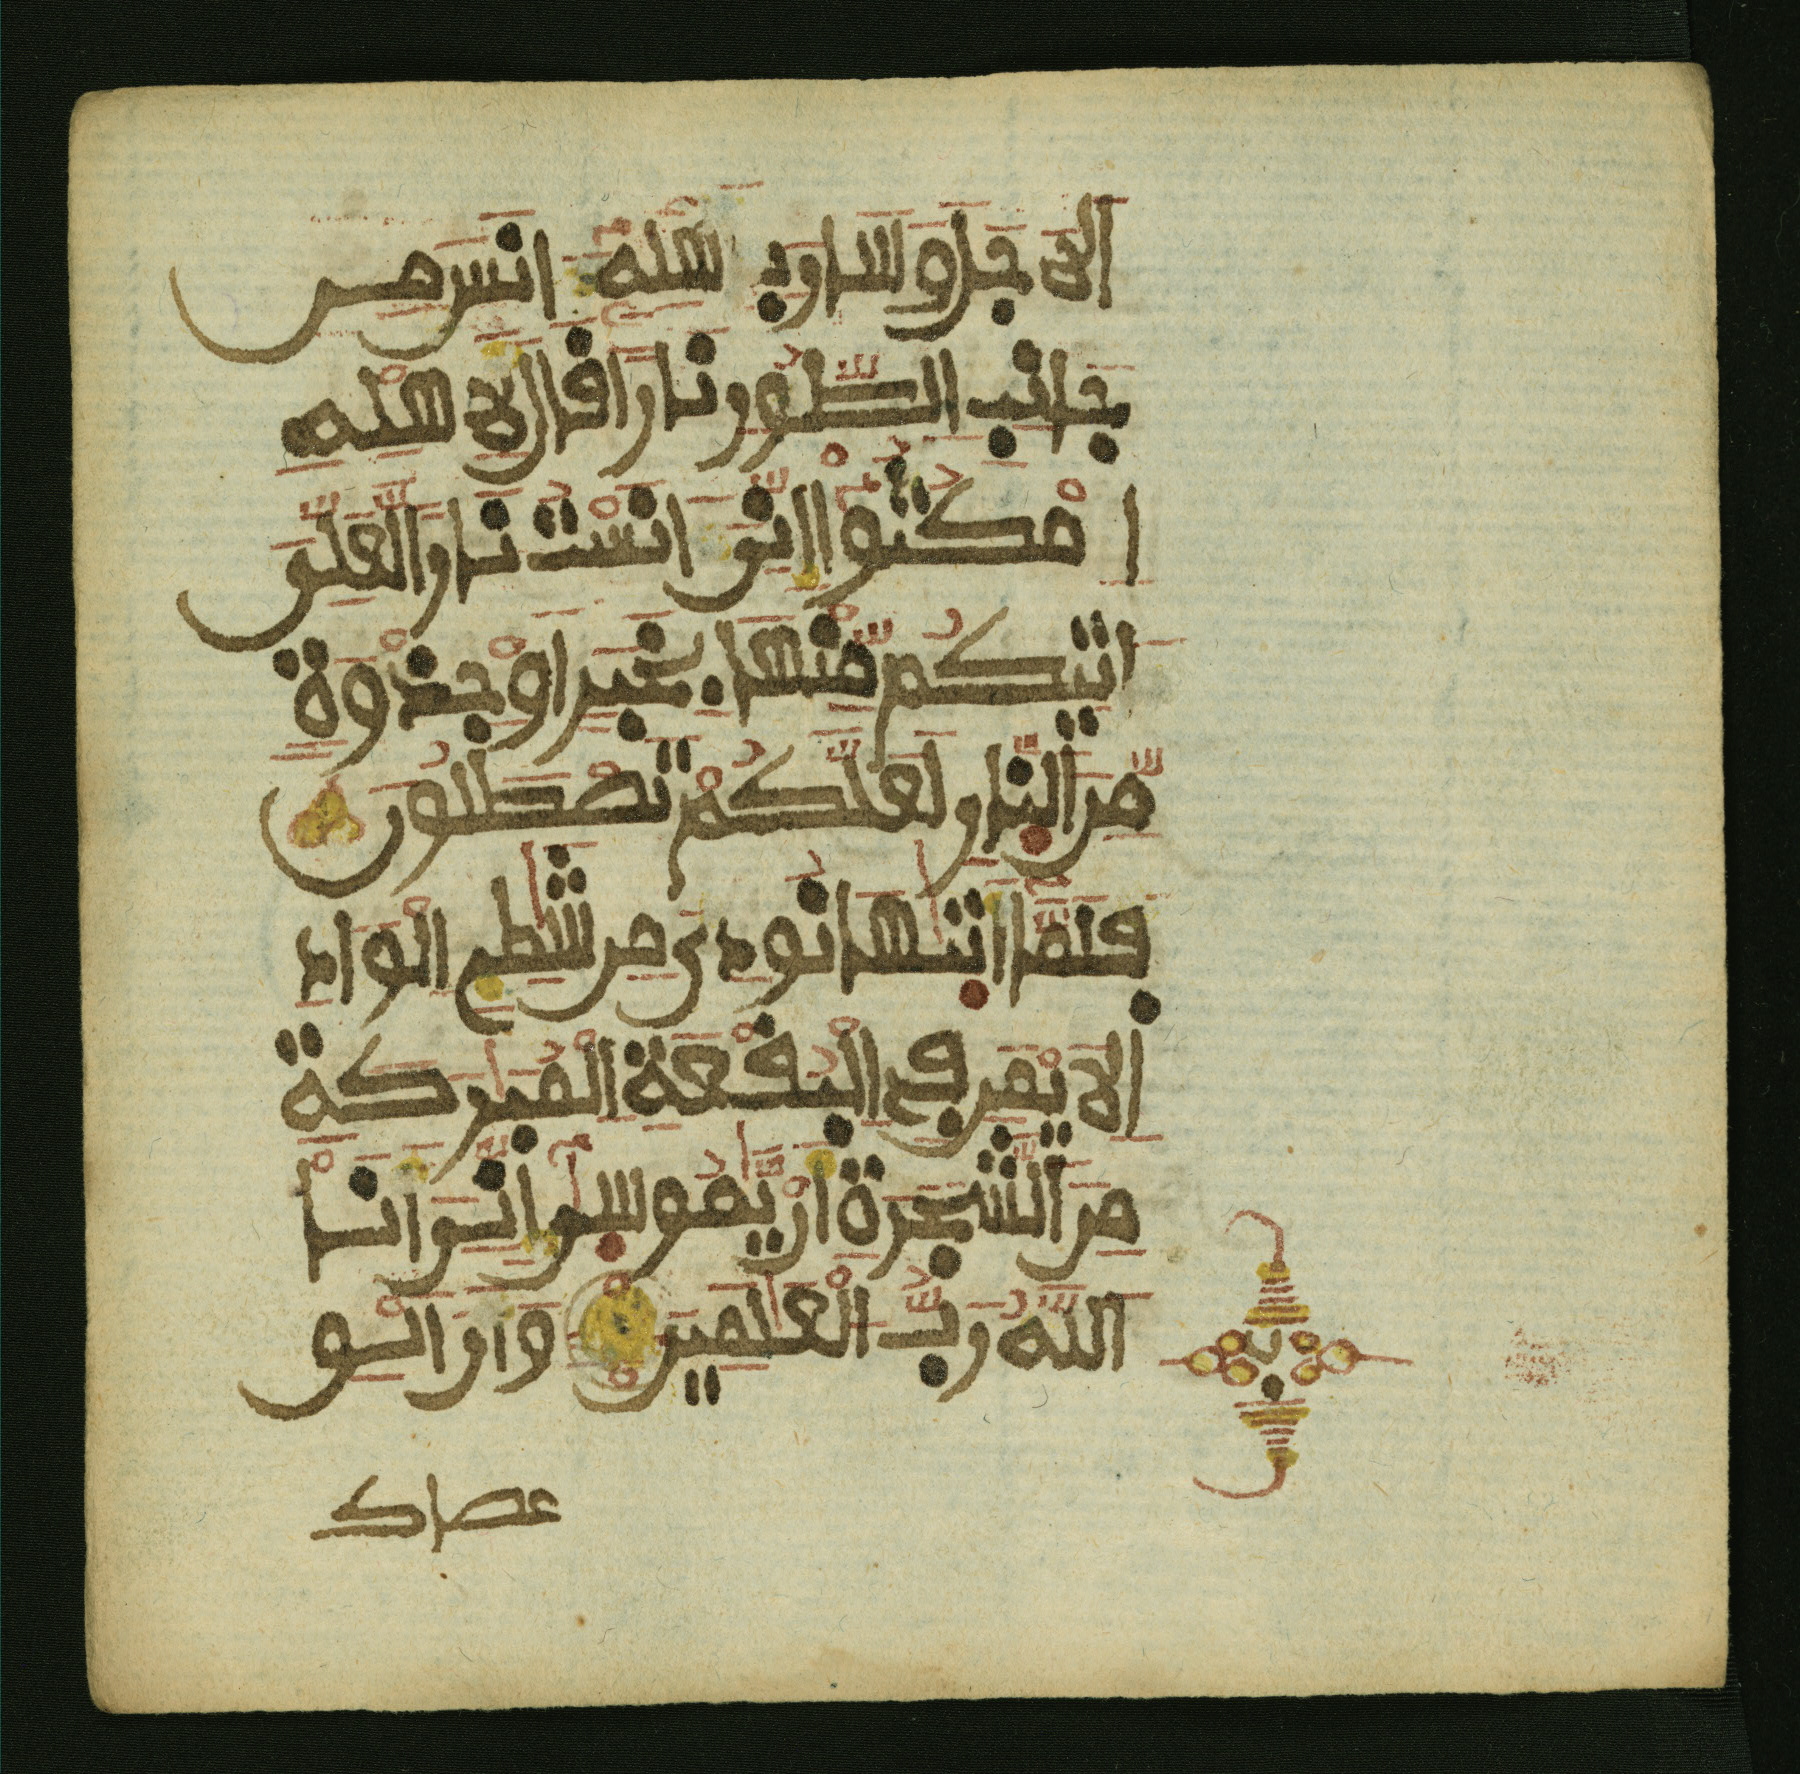 الاجل وسار باهله انس من
جانب الطور نارا قال لاهله
امكثوا انى انست نارا لعلى
اتيكم منها بخبر او جذوة
من النار لعلكم تصطلون
فلما اتيها نودى من شطئ الواد
الايمن فى البقعة المبركة
من الشجرة ان يموسى انى انا
الله رب العلمين وان الق
عصاك